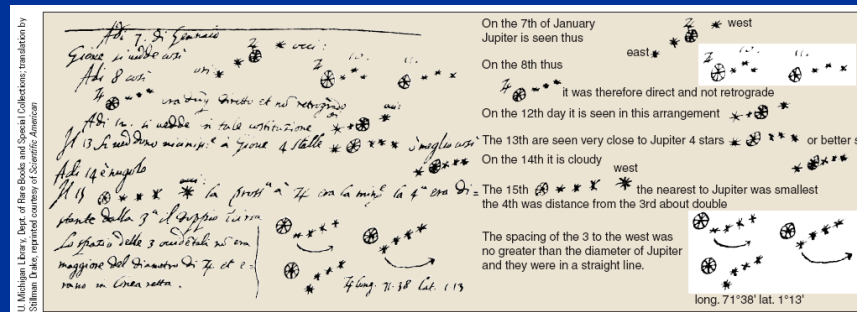 U. Michigan Library, Dept. of Rare Books and Special Collections; translation by
Stillman Drake, reprinted courtesy of Scientific American
Adi 7. di Gennaio
Giove si vedde così
Adi 8 così
era dunque diretto et non retrogrado
Adi 12. si vedde in tale costituzione
Il 13 si veddono vicinissime a Giove 4 stelle
meglio così
Adi 14 è nugolo
Il 15
la prossima a ♃ era la minore la 4ª era di=
stante dalla 3ª il doppio incirca
Lo spazio delle 3 occidentali non era
maggiore del diametro di ♃ et e=
rano in linea retta.
♃ long. 71.38 lat. 1.13
On the 7th of January
Jupiter is seen thus
west
east
On the 8th thus
it was therefore direct and not retrograde
On the 12th day it is seen in this arrangement
The 13th are seen very close to Jupiter 4 stars
or better s
On the 14th it is cloudy
west
The 15th
the nearest to Jupiter was smallest
the 4th was distance from the 3rd about double
The spacing of the 3 to the west was
no greater than the diameter of Jupiter
and they were in a straight line.
long. 71°38' lat. 1°13'